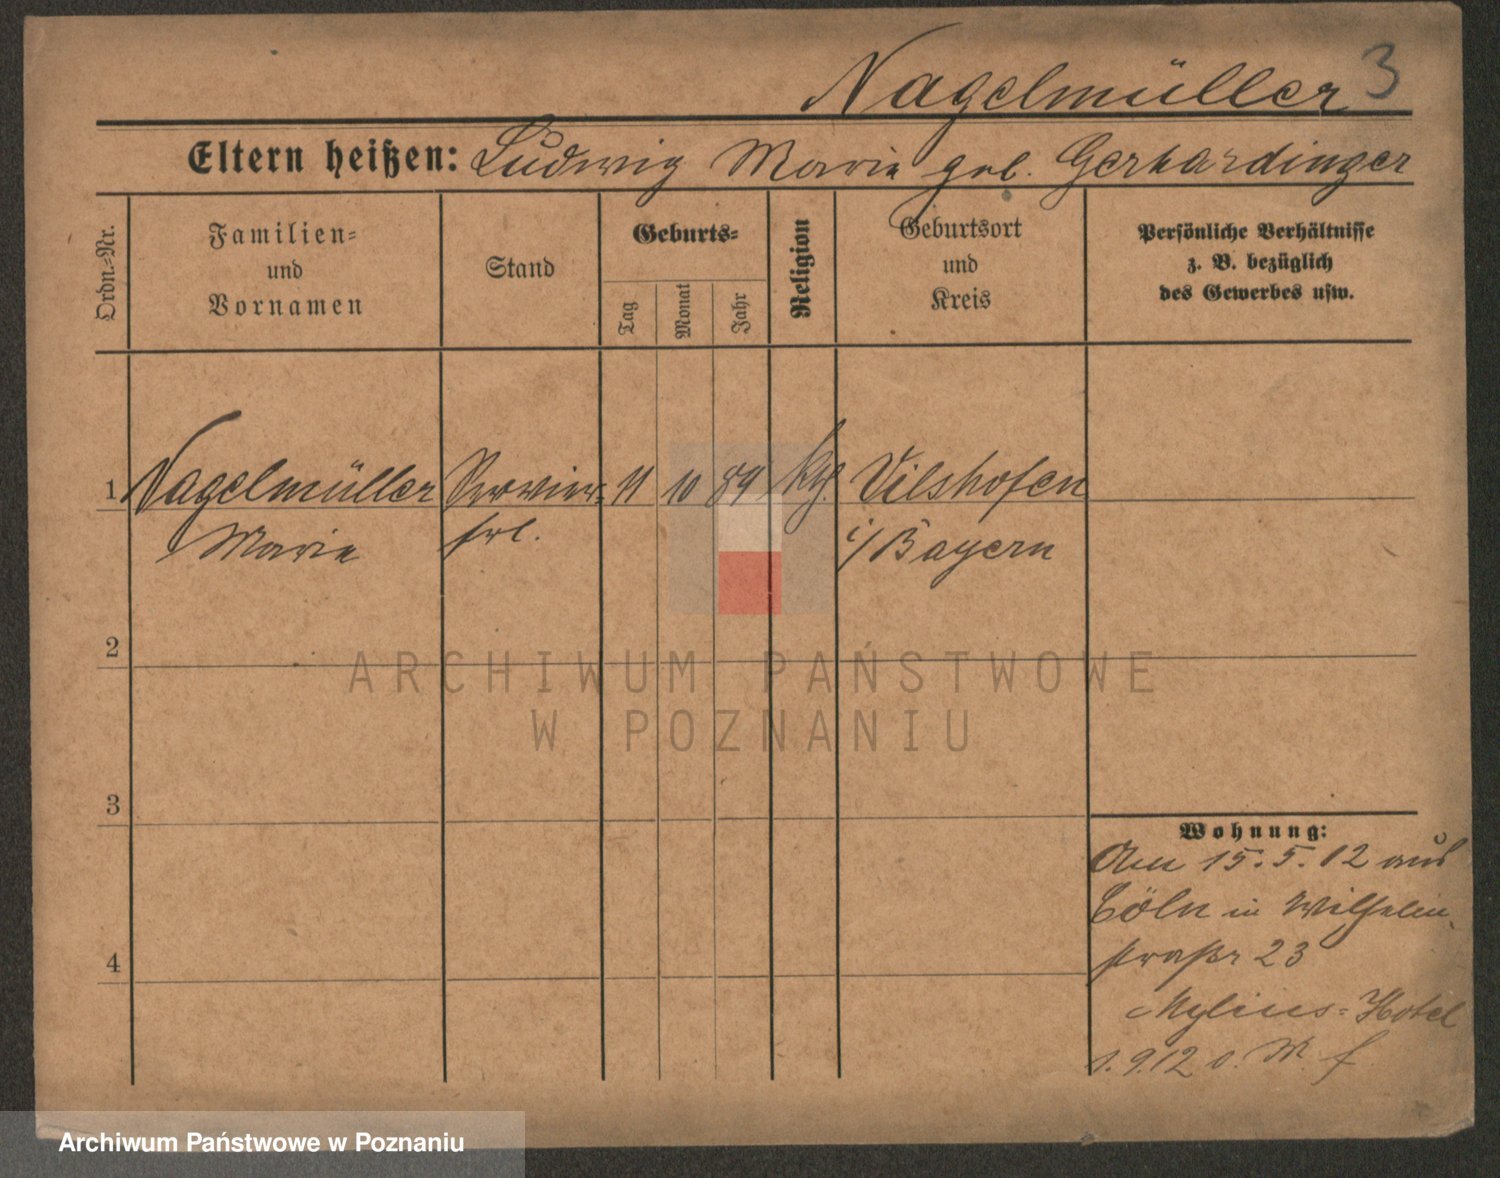 Nagelmüller 3
Eltern heißen: Ludwig Marie geb. Gerhardinger
Ordn.-Nr.
Familien-
und
Vornamen
Stand
Geburts-
Tag
Monat
Jahr
Religion
Geburtsort
und
Kreis
Persönliche Verhältnisse
z. B. bezüglich
des Gewerbes usw.
1 Nagelmüller Servier- 11 10 89 kth. Vilshofen
Marie frl. i/Bayern
2
3
4
Wohnung:
Am 15.5.12 aus
Cöln in Wilhelm-
straße 23
Mylius-Hotel
1.9.12 o.
ARCHIWUM PAŃSTWOWE
W POZNANIU
Archiwum Państwowe w Poznaniu